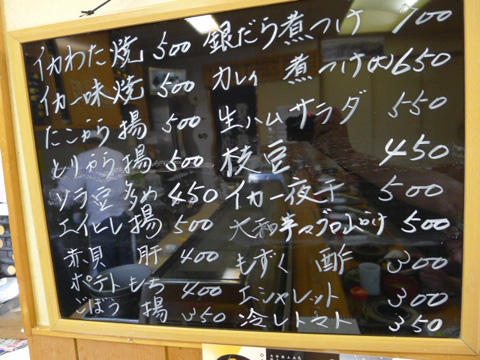 イカわた焼 500
イカ一味焼 500
たこから揚 500
とりから揚 500
ソラ豆多め 450
エイヒレ揚 500
赤貝 肝 400
ポテトもち 400
ごぼう 揚 350
銀だら煮つけ 700
カレイ 煮つけ 650
生ハムサラダ 550
枝豆 450
イカ一夜干 500
大和芋 500
もずく 酢 300
エシャレット 300
冷しトマト 350